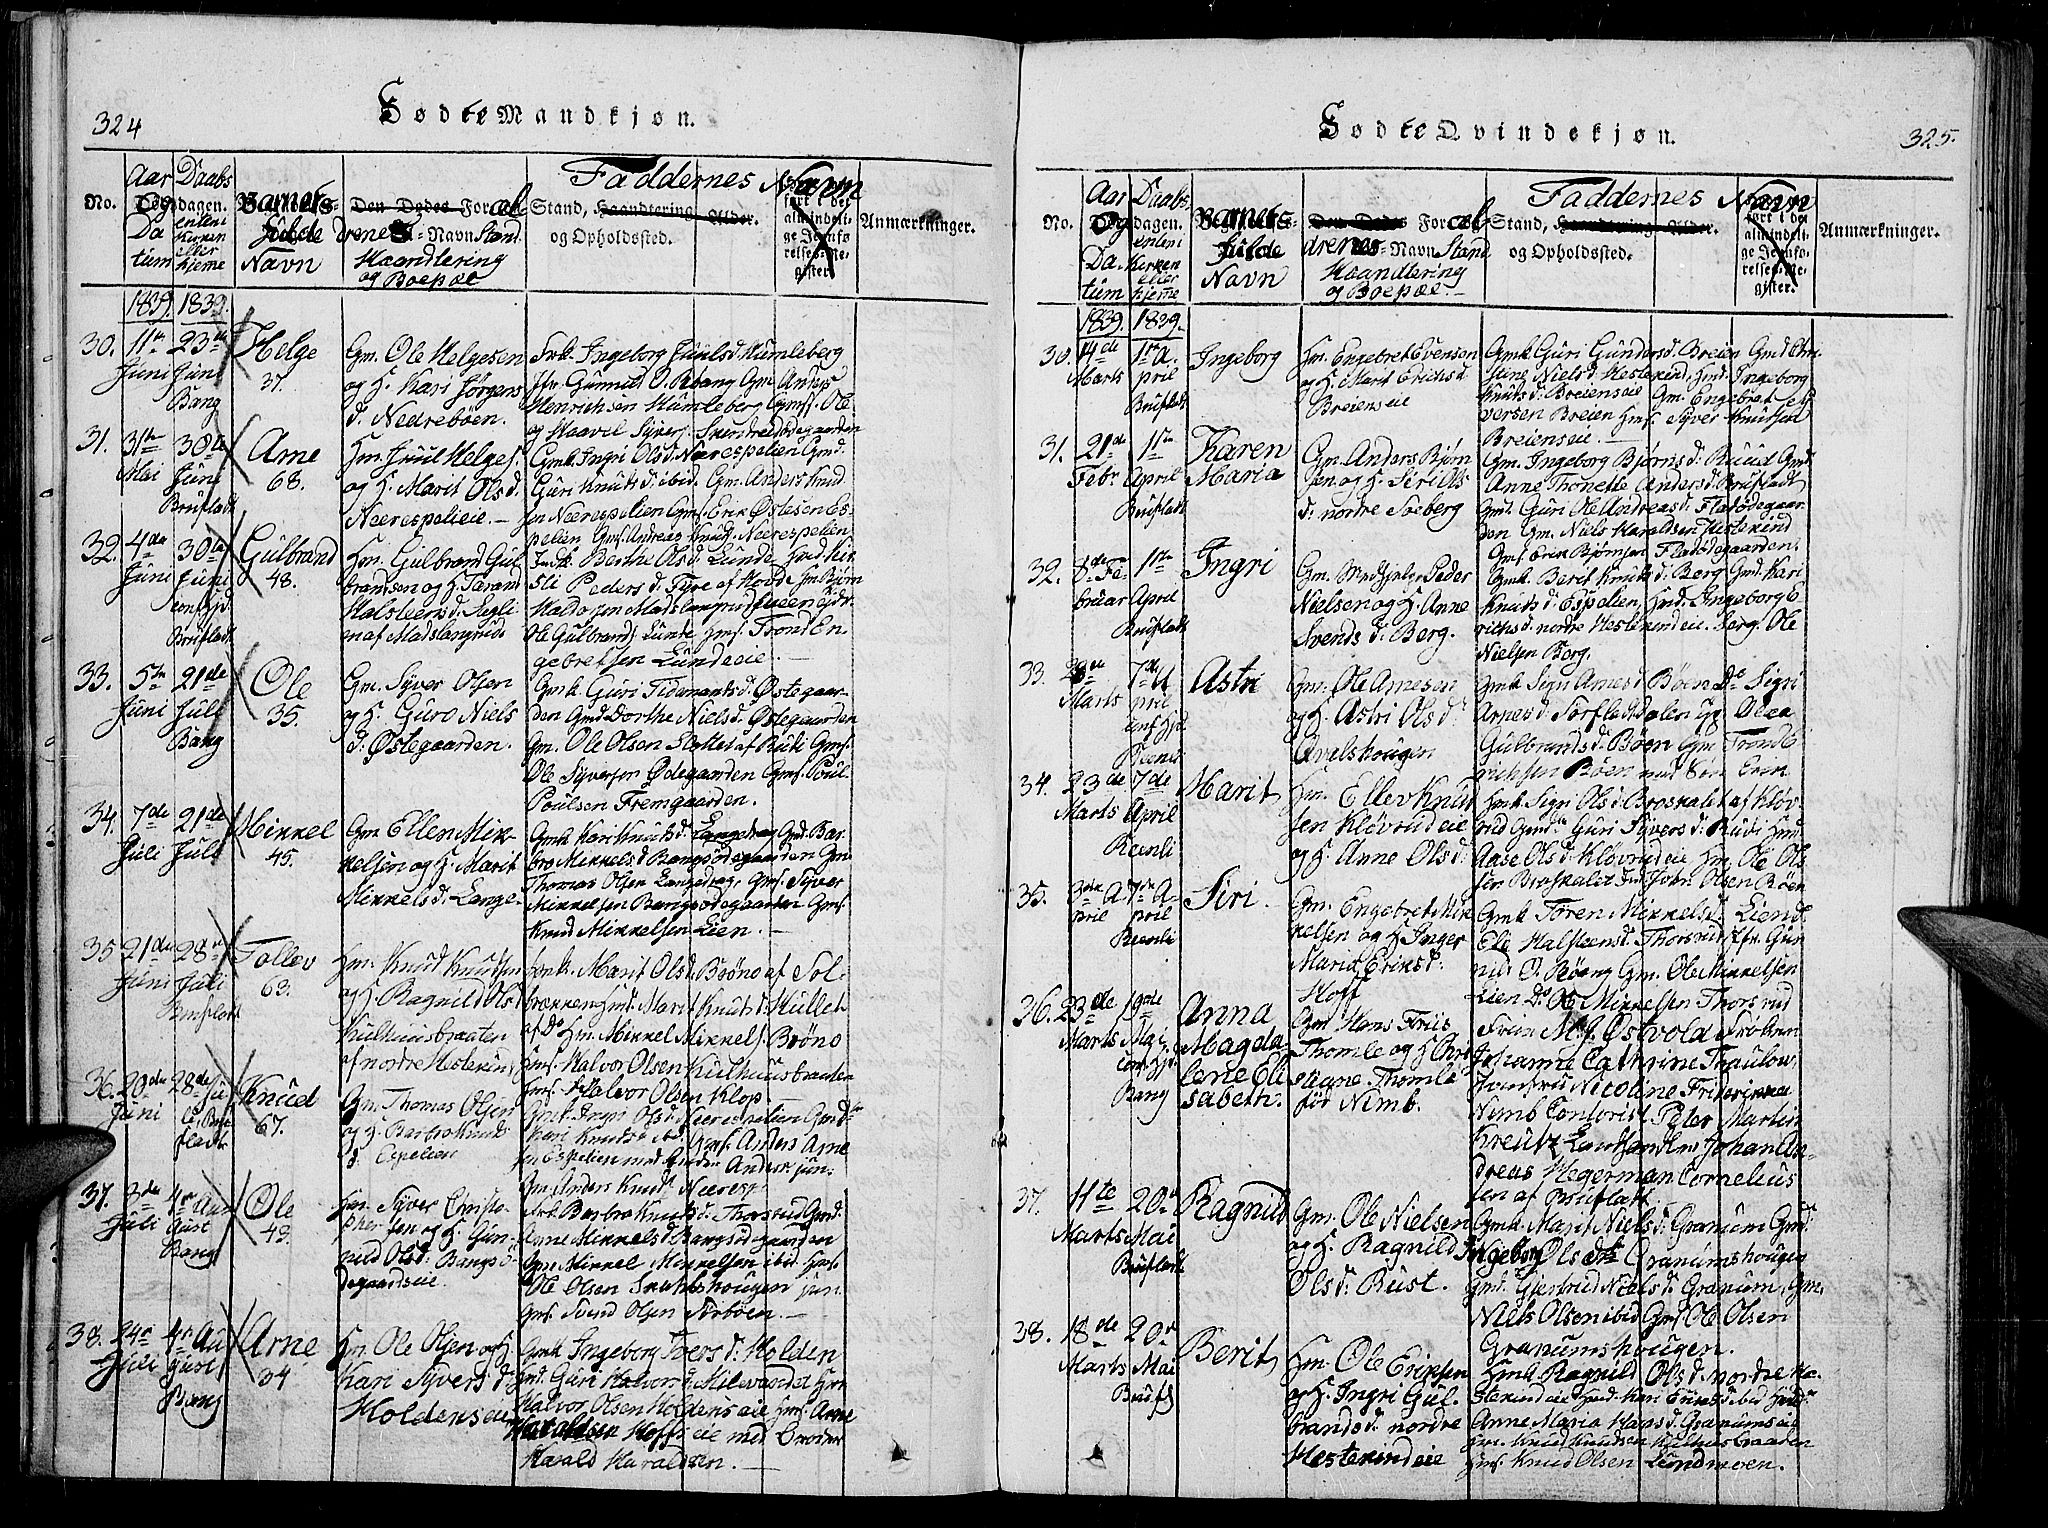 324
Fødte Mandkjøn.
No.
Aar og Datum
Daabsdagen. enten i Kirken eller hjeme
Barnets fulde Navn
Den Dødes Forældrenes Navn Stand Haandtering og Boepæl
Faddernes Navn
Stand, Haandtering og Opholdssted.
Alder.
Anmærkninger.
1839. 1839.
30. 11te Juni 23de Juni Bang
Helge 37.
Gm. Ole Helgesen
og H. Kari Jørgens
d. Nedrebøen.
Frk. Ingeborg Juulsd. Humleberg
Jfr. Gunnild O. Rbang Gm. Anders
Henrichsen Humleberg Gmf. Ole
og Haavel Syvers. Skendreidødegaarden
31. 31te Mai 30te Juni Brufladt
Arne 68.
Hm. Juul Helges.
og H. Marit Olsd.
Neerespelieie.
Gmk. Ingri Olsd. Næerespelien Gmd.
Guri Knutsd. ibid. Gm. Anders Knud
sen Neerespelien Gmf. Erik Østesen Es
pelien Gmf. Andreas Knuds. Neerespelien
32. 4de Juni 30te Juni Brufladt
Gulbrand 48.
Hm. Gulbrand Gul
brandsen og H. Tarand
Halsteensd.
en af Madslangrud
Indk. Berthe Olsd. Lunde Hmd. Kir
sti Pedersd. Tyre af Hovde Hm. Bjørn
Haldorsen Madslangrud
Ole Gulbrands. Lunde Hmf. Trond En
gebretsen Lundeeie.
33. 5te Juni 21de Juli Bang
Ole 35.
Gm. Syver Olsen
og H. Guro Niels
d. Østegaarden.
Gmk. Guri Tidemantsd. Østegaar
den Gmd. Dorthe Nielsd. Østegaarden
Gm. Ole Olsen Slottet af Rudi Gmf.
Ole Syversen Ødegaarden Gmf. Poul
Poulsen Fremgaarden.
34. 7de Juli 21de Juli
Mikkel 45.
Gm. Ellen Mik
kelsen og H. Marit
Mikkelsd. Lange-
Gmk. Kari Knutsd. Langedrag Gmd. Bar
bro Mikkelsd. Bangsødegaarden Gm.
Thomas Olsen Langedrag, Gmf. Syver
Mikkelsen Bangsødegaarden Gmf.
Knud Mikkelsen Lien.
35 21de Juni 28de Juli Brufladt
Tollev 63.
Hm. Knud Knudsen
og H. Ragnild Olsd.
Kulhuusbraaten
af nordre Hestekind
Marit Olsd. Brøno af Sol
brækken Hmd. Marit Knutsd. Hullet
af Do Hm. Mikkel Mikkels. Brøno
Hmf. Halvor Olsen Kulhuusbraaten
Hmf. Halvor Olsen Klop.
36. 20de Juni 28de Juli, Brufladt
Knud 67.
Gm. Thomas Olsen
og H. Barbro Knuds
d. Espelien
Gmk. Ingri Olsd. Neerespelien Gmd.
Kari Knutsd. ibid. Gmf. Anders Arne
sen Espelien med Anders. jun.
Gm. Anders Knuds. Neeresp.
37. 3de Juli 4de August Bang
Ole 43.
Hm. Syver Christo
phersen og H. Gun
nild Olsd. Bangsø
degaardseie.
Frk. Barbro Knutsd. Thorsrud Gmd.
Anne Mikkelsd. Bangsødegaarden
Gm. Mikkel Mikkelsen ibid. Gmf.
Ole Olsen Skutshougen jun.
Gmf. Svend Olsen Sørbøen.
38. 24de Juli 4de August Bang
Arne 34
Hm. Ole Olsen og H.
Kari Syversd.
Holdenseie
Gmk. Ingeborg Iversd. Holden
Gmd. Guri Halvorsd. Milevandet Hm.
Halvor Olsen Holdenseie Hmf. Arne
Haraldsen Hoffseie med Broder
Harald Haraldsen.
325.
Fødte Qvindekjøn.
No.
Aar og Datum
Daabsdagen. enten i Kirken eller hjeme
Barnets fulde Navn
Den Dødes Forældrenes Navn Stand Haandtering og Boepæl.
Faddernes Navn
Stand, Haandtering og Opholdssted.
Alder.
Anmærkninger.
1839. 1839.
30. 14de Marts 1ste April Brufladt
Ingeborg
Hm. Engebret Evensen
og H. Marit Erichsd.
Breienseie
Gmk. Guri Gundersd. Breien Gmd. Chri
stine Nielsd. Hestekind, Hmd. Ingeborg
Knutsd. Breienseie Gm. Engebret Sy
versen Breien Hmf. Syver Knutsen
Breienseie.
31. 21de Febr. 1ste April Brufladt
Karen Maria
Gm. Anders Bjørn
sen og H. Siri Ols
d. nordre Soeberg
Gm. Ingeborg Bjørnsd. Ruud Gmd.
Anne Thonette Andersd. Brufladt
Gmd. Guri Ole Andreasd. Fladødegaar
den Gm. Niels Haraldsen Hestekind
Gmf. Erik Bjørnsen Fladødegaarden.
32. 8de Februar 1ste April Brufladt
Ingri
Gm. Medhjelper Peder
Nielsen og H. Anne
Svendsd. Berg.
Gmk. Berit Knutsd. Berg Gmd. Kari
Knutsd. Espelien, Hmd. Ingeborg E
richsd. nordre Hestekindeie. Berg. Ole
Nielsen Berg.
33. Marts 7de April Reenli
Astri
Gm. Ole Arnesen
og H. Astri Olsd.
Avelshougen
Gmk. Sigri Arnesd. Bøen Do Sigri
Arnesd. Sørfladdalen
Gulbrandsd. Bøen Gm. Trond E
richsen Bøen med Søn Erik
34. 23de Marts 7de April Reenli
Marit
Hm. Ellev Knut
sen Kløvrudeie
og H. Anne Olsd.
Hmk. Sigri Olsd. Broskalet af Kløv
rud Gmd. Guri Syversd. Rudi Hmd.
Aase Olsd. Kløvrudeie Hm. Ole Ols
sen Broskalet Ind. John Olsen Bøen
35. 3die April 7de April Reenli
Siri.
Gm. Engebret Mik
kelsen og H. Inger
Maria Eriksd.
Hoff
Gmk. Tøren Mikkelsd. Liend.
Eli Halsteensd. Thorsrud, Jfr. Gun
nild O. Røang Gm. Ole Mikkelsen
Lien Do Ole Mikkelsen Thorsrud
36. 23de Marts 19de Mai Bang
Anna Magdalene Elisabeth.
Gm. Hans Friis
Thomle og H. Chri
stiane Thomle
før Nimb.
Fruen M. Østvold Frøken
Johanne Cathrine Traulow,
Jomfru Nicoline Friderikka
Nimb Contorist Peter Martin
Kreutz Landhandler Johan An
dreas Hegerman Cornelius
sen af Bruflatt
37. 11te Marts 20de Mai Bruflatt
Ragnild
Gm. Ole Nielsen
og H. Ragnild
Olsd. Rust.
Gmk. Marit Nielsd. Granum Gmd.
Ingeborg Olsd. Granumshougen
Gmd. Gjertrud Nielsd. Granum, Gm.
Niels Olsen ibid Gmf. Ole Olsen
Granumshougen.
38. 18de Marts 20de Mai Brufl.
Berit
Hm. Ole Eriksen
og H. Ingri Gul
brandsd. nordre
Hestekindeie
Hmk. Ragnild Olsd. nordre He
stekindeie Hmd. Kari Evensd. ibid Hmd.
Anne Maria Hansd. Granumseie
Hm. Knud Knudsen Kulhusbraaden
Hmf. Knud Olsen Lundmoen.